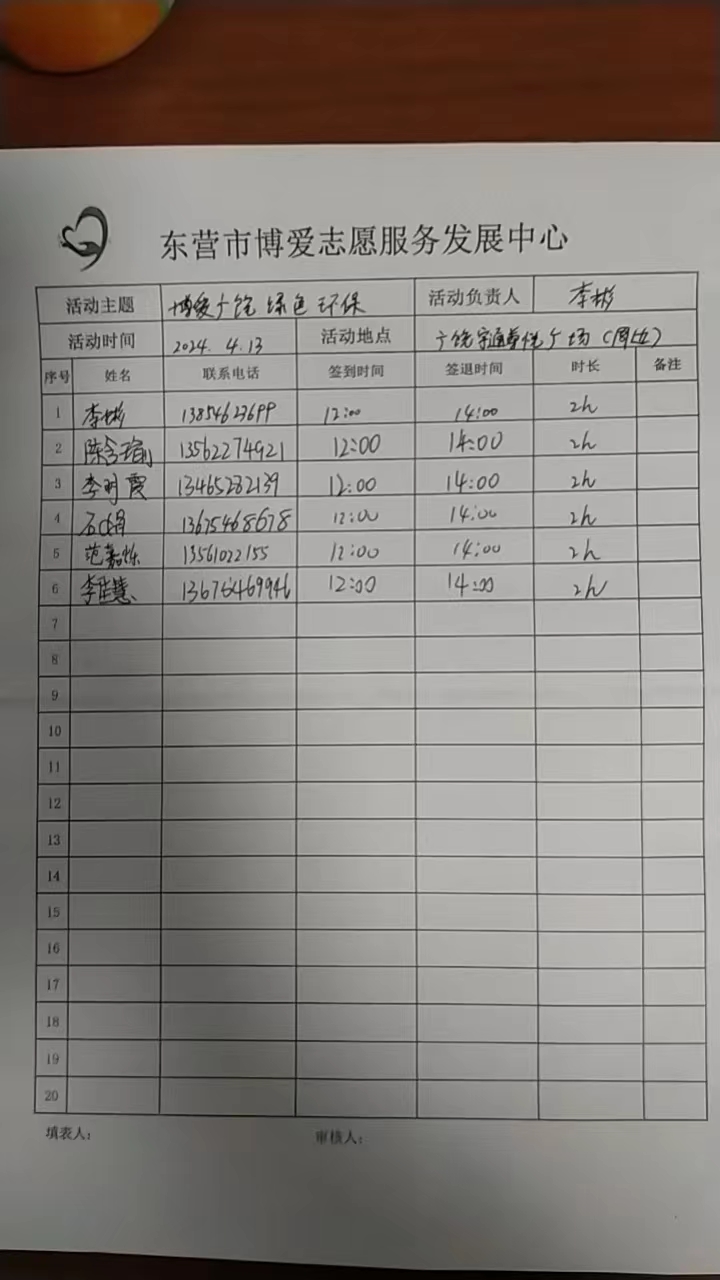 东营市博爱志愿服务发展中心
活动主题 博爱广饶 绿色环保 活动负责人 李彬
活动时间 2024. 4.13 活动地点 广饶 广场(周边)
序号 姓名 联系电话 签到时间 签退时间 时长 备注
1 李彬 13854623699 12:00 14:00 2h
2 陈含瑜 13562274921 12:00 14:00 2h
3 李明霞 13465282139 12:00 14:00 2h
4 石娟 13675468678 12:00 14:00 2h
5 范嘉烁 13561022155 12:00 14:00 2h
6 李佳慧 13676469946 12:00 14:00 2h
7
8
9
10
11
12
13
14
15
16
17
18
19
20
填表人: 审核人: